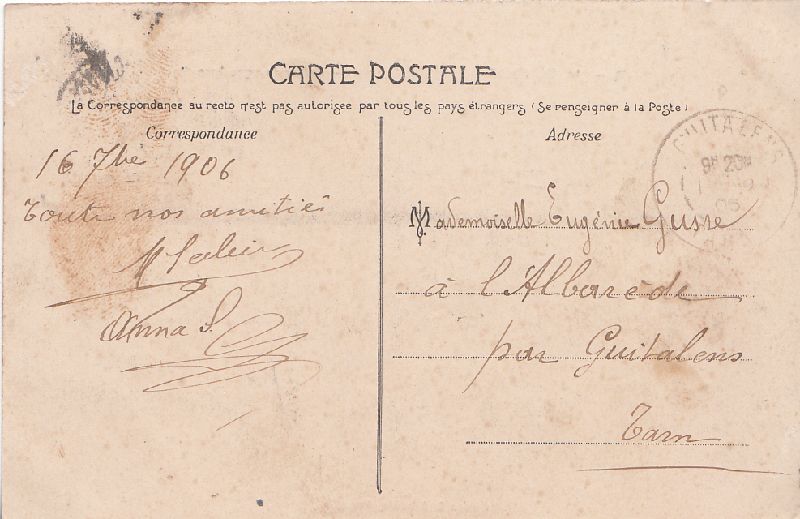 CARTE POSTALE
La Correspondance au recto n'est pas autorisée par tous les pays étrangers (Se renseigner à la Poste)
Correspondance
16 7bre 1906
Toutes nos amitiés
Anna S.
Adresse
GUITALENS
Mademoiselle Eugénie Gusse
à l'Albarède
par Guitalens
Tarn